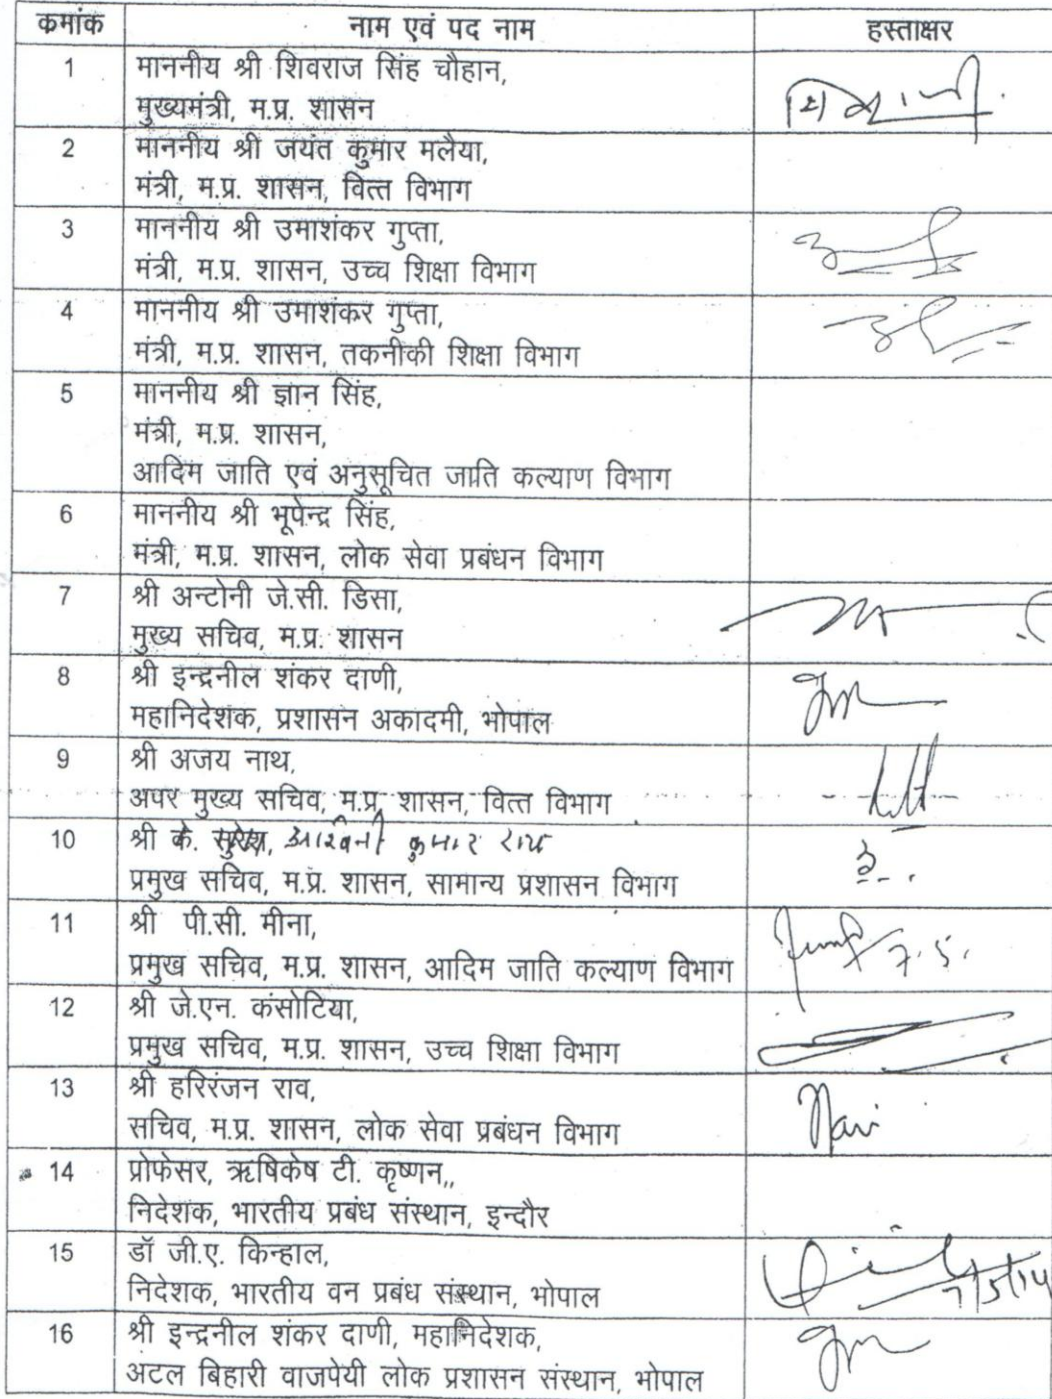 कमांक नाम एवं पद नाम हस्ताक्षर
1 माननीय श्री शिवराज सिंह चौहान,
मुख्यमंत्री, म.प्र. शासन
2 माननीय श्री जयंत कुमार मलैया,
मंत्री, म.प्र. शासन, वित्त विभाग
3 माननीय श्री उमाशंकर गुप्ता,
मंत्री, म.प्र. शासन, उच्च शिक्षा विभाग
4 माननीय श्री उमाशंकर गुप्ता,
मंत्री, म.प्र. शासन, तकनीकी शिक्षा विभाग
5 माननीय श्री ज्ञान सिंह,
मंत्री, म.प्र. शासन,
आदिम जाति एवं अनुसूचित जाति कल्याण विभाग
6 माननीय श्री भूपेन्द्र सिंह,
मंत्री, म.प्र. शासन, लोक सेवा प्रबंधन विभाग
7 श्री अन्टोनी जे.सी. डिसा,
मुख्य सचिव, म.प्र. शासन
8 श्री इन्द्रनील शंकर दाणी,
महानिदेशक, प्रशासन अकादमी, भोपाल
9 श्री अजय नाथ,
अपर मुख्य सचिव, म.प्र. शासन, वित्त विभाग
10 श्री के. सुरेश, कुमार राय
प्रमुख सचिव, म.प्र. शासन, सामान्य प्रशासन विभाग
11 श्री पी.सी. मीना,
प्रमुख सचिव, म.प्र. शासन, आदिम जाति कल्याण विभाग 7.5.
12 श्री जे.एन. कंसोटिया,
प्रमुख सचिव, म.प्र. शासन, उच्च शिक्षा विभाग
13 श्री हरिरंजन राव,
सचिव, म.प्र. शासन, लोक सेवा प्रबंधन विभाग
14 प्रोफेसर, ऋषिकेष टी. कृष्णन,,
निदेशक, भारतीय प्रबंध संस्थान, इन्दौर
15 डॉ जी.ए. किन्हाल,
निदेशक, भारतीय वन प्रबंध संस्थान, भोपाल 7/5/14
16 श्री इन्द्रनील शंकर दाणी, महानिदेशक,
अटल बिहारी वाजपेयी लोक प्रशासन संस्थान, भोपाल